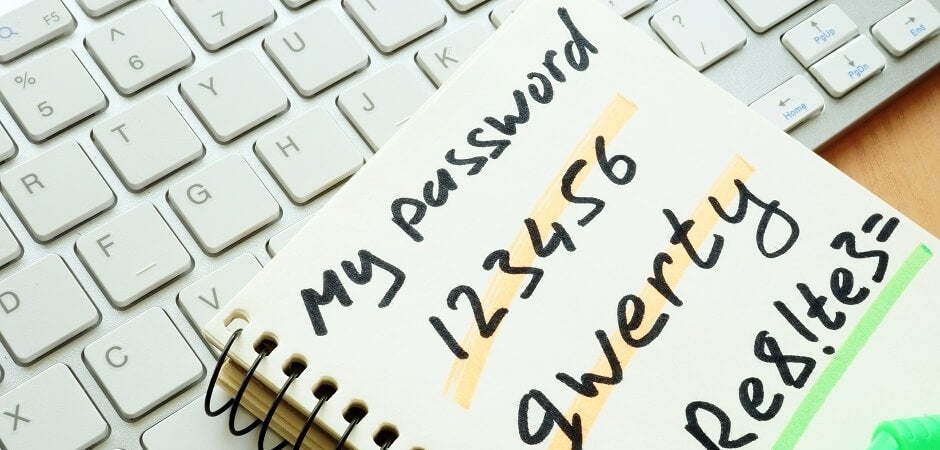 F5
^ 6
U
I
K
? /
PgUp
End
% 5
Y
J
PgDn
Home
T
H
R
G
F
D
V
C
X
My password
123456
qwerty
Re8!te3=